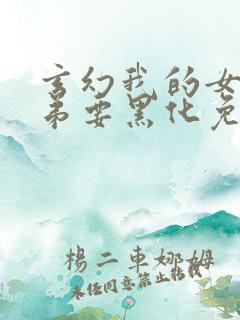 玄幻我的女
弟要黑化免
楊二車娜姆
未经同意禁止转载